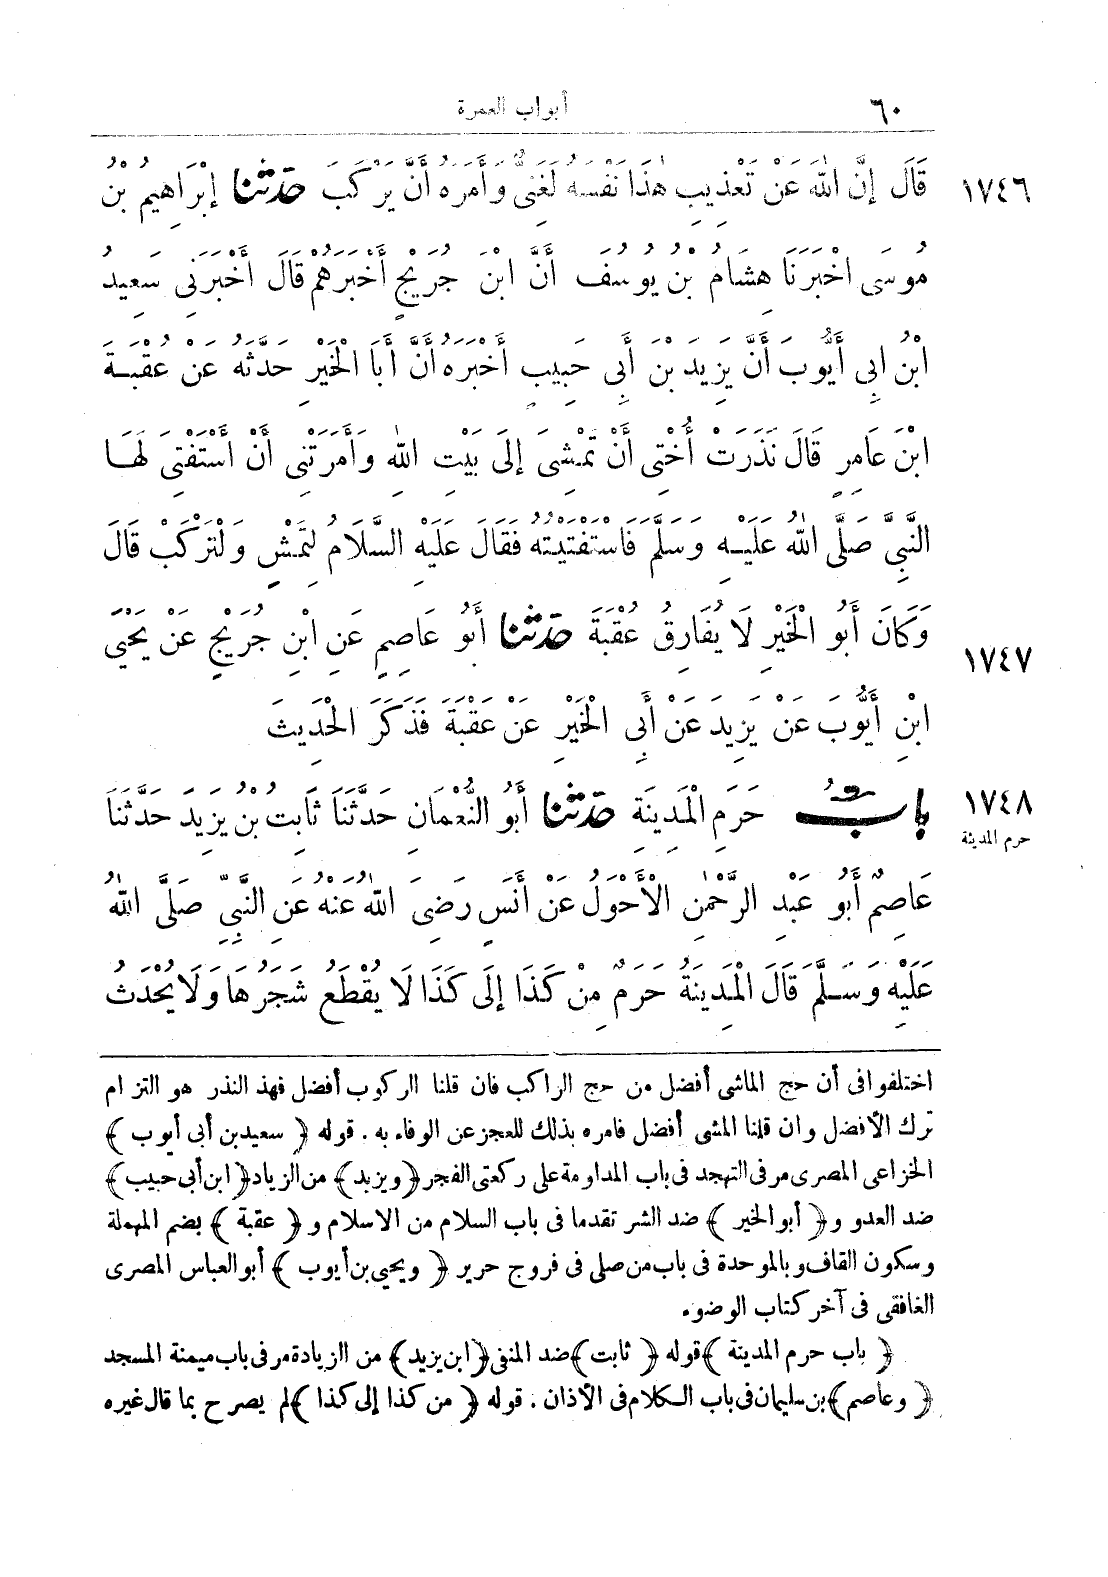 ٦٠
أبواب العمرة
١٧٤٦
قَالَ إِنَّ اللَّهَ عَنْ تَعْذِيبِ هٰذَا نَفْسَهُ لَغَنِىٌّ وَأَمَرَهُ أَنْ يَرْكَبَ حَدَّثَنَا إِبْرَاهِيمُ بْنُ
مُوسَى أَخْبَرَنَا هِشَامُ بْنُ يُوسُفَ أَنَّ ابْنَ جُرَيْجٍ أَخْبَرَهُمْ قَالَ أَخْبَرَنِى سَعِيدُ
ابْنُ أَبِى أَيُّوبَ أَنَّ يَزِيدَ بْنَ أَبِى حَبِيبٍ أَخْبَرَهُ أَنَّ أَبَا الْخَيْرِ حَدَّثَهُ عَنْ عُقْبَةَ
ابْنِ عَامِرٍ قَالَ نَذَرَتْ أُخْتِى أَنْ تَمْشِىَ إِلَى بَيْتِ اللهِ وَأَمَرَتْنِى أَنْ أَسْتَفْتِىَ لَهَا
النَّبِىَّ صَلَّى اللهُ عَلَيْهِ وَسَلَّمَ فَاسْتَفْتَيْتُهُ فَقَالَ عَلَيْهِ السَّلَامُ لِتَمْشِ وَلْتَرْكَبْ قَالَ
وَكَانَ أَبُو الْخَيْرِ لَا يُفَارِقُ عُقْبَةَ حَدَّثَنَا أَبُو عَاصِمٍ عَنِ ابْنِ جُرَيْجٍ عَنْ يَحْيَى
١٧٤٧
ابْنِ أَيُّوبَ عَنْ يَزِيدَ عَنْ أَبِى الْخَيْرِ عَنْ عُقْبَةَ فَذَكَرَ الْحَدِيثَ
١٧٤٨
حرم المدينة
بَابُ حَرَمِ الْمَدِينَةِ حَدَّثَنَا أَبُو النُّعْمَانِ حَدَّثَنَا ثَابِتُ بْنُ يَزِيدَ حَدَّثَنَا
عَاصِمٌ أَبُو عَبْدِ الرَّحْمٰنِ الْأَحْوَلُ عَنْ أَنَسٍ رَضِىَ اللهُ عَنْهُ عَنِ النَّبِىِّ صَلَّى اللهُ
عَلَيْهِ وَسَلَّمَ قَالَ الْمَدِينَةُ حَرَمٌ مِنْ كَذَا إِلَى كَذَا لَا يُقْطَعُ شَجَرُهَا وَلَا يُحْدَثُ
اختلفوا فى أن حج الماشى أفضل من حج الراكب فان قلنا الركوب أفضل فهذ النذر هو التزام
ترك الأفضل وان قلنا المشى أفضل فامره بذلك للعجز عن الوفاء به . قوله ﴿ سعيد بن أبى أيوب ﴾
الخزاعى المصرى مر فى التهجد فى باب المداومة على ركعتى الفجر ﴿ ويزيد ﴾ من الزياد ﴿ ابن أبى حبيب ﴾
ضد العدو و﴿ أبو الخير ﴾ ضد الشر تقدما فى باب السلام من الاسلام و ﴿ عقبة ﴾ بضم المهملة
وسكون القاف وبالموحدة فى باب من صلى فى فروج حرير ﴿ ويحيى بن أيوب ﴾ أبو العباس المصرى
الغافقى فى آخر كتاب الوضوء
﴿ باب حرم المدينة ﴾ قوله ﴿ ثابت ﴾ ضد المنفى ﴿ ابن يزيد ﴾ من الزيادة مر فى باب ميمنة المسجد
﴿ وعاصم ﴾ بن سليمان فى باب الكلام فى الأذان . قوله ﴿ من كذا إلى كذا ﴾ لم يصرح بما قال غيره